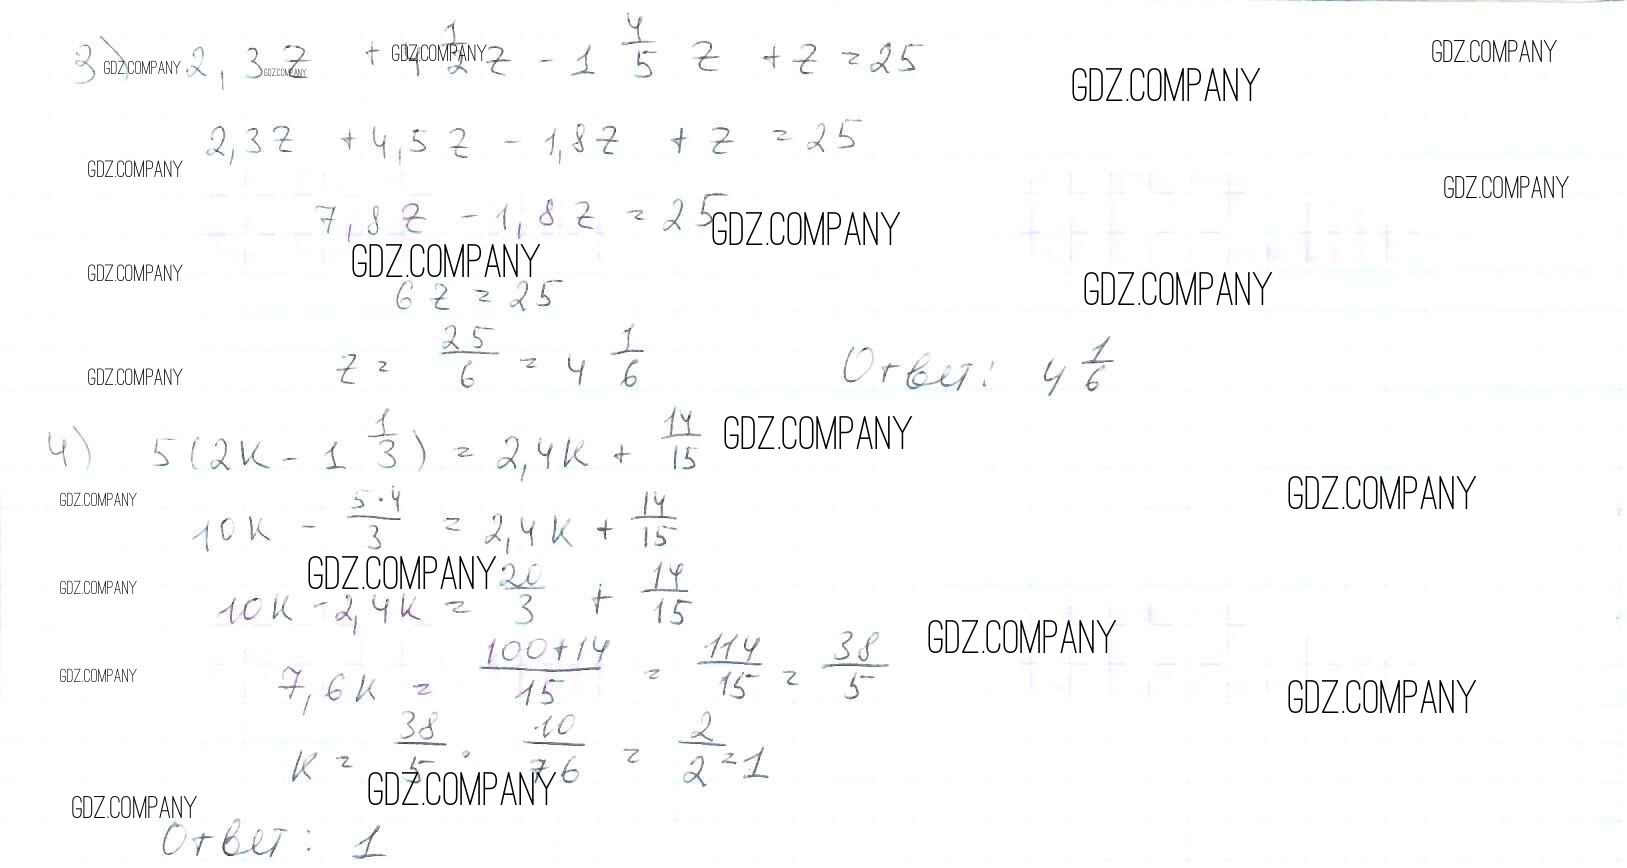 3) 2,3z + 4 1/2 z - 1 4/5 z + z = 25
GDZ.COMPANY GDZ.COMPANY GDZ.COMPANY GDZ.COMPANY
GDZ.COMPANY
2,3z + 4,5z - 1,8z + z = 25
GDZ.COMPANY
GDZ.COMPANY
7,8z - 1,8z = 25
GDZ.COMPANY
GDZ.COMPANY
GDZ.COMPANY
GDZ.COMPANY
6z = 25
z = 25/6 = 4 1/6 Ответ: 4 1/6
GDZ.COMPANY
4) 5(2k - 1 1/3) = 2,4k + 14/15
GDZ.COMPANY
GDZ.COMPANY
GDZ.COMPANY
10k - 5·4/3 = 2,4k + 14/15
GDZ.COMPANY
GDZ.COMPANY
10k - 2,4k = 20/3 + 14/15
GDZ.COMPANY
GDZ.COMPANY
7,6k = 100+14/15 = 114/15 = 38/5
GDZ.COMPANY
k = 38/5 · 10/76 = 2/2 = 1
GDZ.COMPANY
GDZ.COMPANY
Ответ: 1